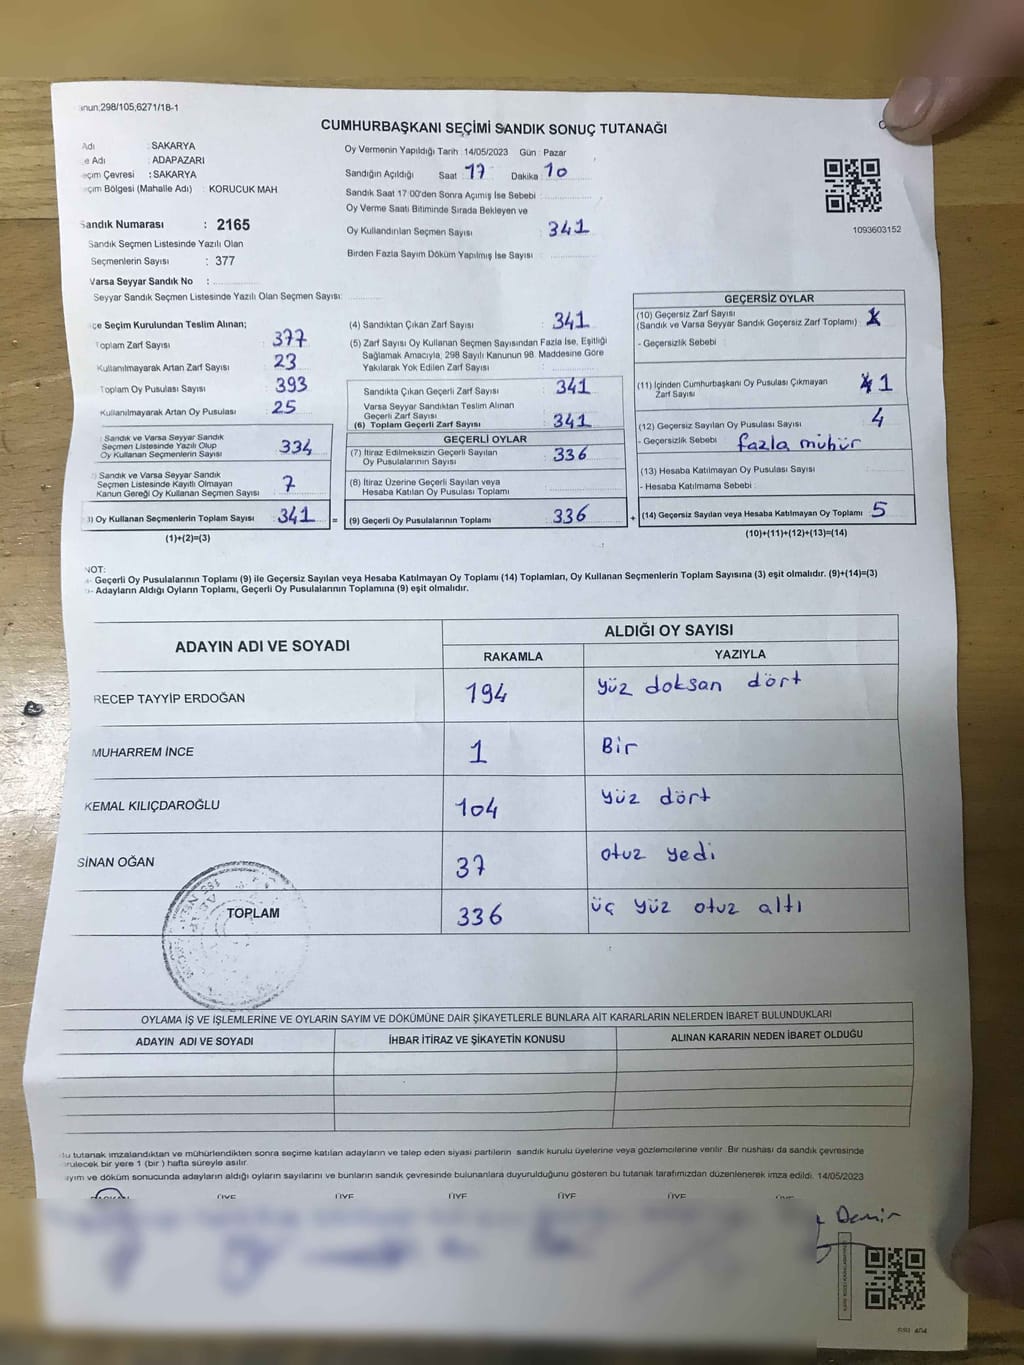 anun;298/105;6271/18-1
CUMHURBAŞKANI SEÇİMİ SANDIK SONUÇ TUTANAĞI
Adı : SAKARYA
e Adı : ADAPAZARI
eçim Çevresi : SAKARYA
eçim Bölgesi (Mahalle Adı) : KORUCUK MAH.
Sandık Numarası : 2165
Sandık Seçmen Listesinde Yazılı Olan
Seçmenlerin Sayısı : 377
Varsa Seyyar Sandık No :
Seyyar Sandık Seçmen Listesinde Yazılı Olan Seçmen Sayısı:
Oy Vermenin Yapıldığı Tarih : 14/05/2023 Gün : Pazar
Sandığın Açıldığı Saat : 17 Dakika 10
Sandık Saat 17:00'den Sonra Açımış İse Sebebi :
Oy Verme Saati Bitiminde Sırada Bekleyen ve
Oy Kullandırılan Seçmen Sayısı : 341
Birden Fazla Sayım Döküm Yapılmış İse Sayısı :
1093603152
çe Seçim Kurulundan Teslim Alınan;
Toplam Zarf Sayısı : 377
Kullanılmayarak Artan Zarf Sayısı : 23
Toplam Oy Pusulası Sayısı : 393
Kullanılmayarak Artan Oy Pusulası : 25
Sandık ve Varsa Seyyar Sandık
Seçmen Listesinde Yazılı Olup
Oy Kullanan Seçmenlerin Sayısı : 334
Sandık ve Varsa Seyyar Sandık
Seçmen Listesinde Kayıtlı Olmayan
Kanun Gereği Oy Kullanan Seçmen Sayısı : 7
3) Oy Kullanan Seçmenlerin Toplam Sayısı : 341 =
(1)+(2)=(3)
(4) Sandıktan Çıkan Zarf Sayısı : 341
(5) Zarf Sayısı Oy Kullanan Seçmen Sayısından Fazla İse, Eşitliği
Sağlamak Amacıyla, 298 Sayılı Kanunun 98. Maddesine Göre
Yakılarak Yok Edilen Zarf Sayısı :
Sandıkta Çıkan Geçerli Zarf Sayısı : 341
Varsa Seyyar Sandıktan Teslim Alınan
Geçerli Zarf Sayısı
(6) Toplam Geçerli Zarf Sayısı : 341
GEÇERLİ OYLAR
(7) İtiraz Edilmeksizin Geçerli Sayılan
Oy Pusulalarının Sayısı : 336
(8) İtiraz Üzerine Geçerli Sayılan veya
Hesaba Katılan Oy Pusulası Toplamı :
(9) Geçerli Oy Pusulalarının Toplamı : 336 +
GEÇERSİZ OYLAR
(10) Geçersiz Zarf Sayısı
(Sandık ve Varsa Seyyar Sandık Geçersiz Zarf Toplamı) :
- Geçersizlik Sebebi :
(11) İçinden Cumhurbaşkanı Oy Pusulası Çıkmayan
Zarf Sayısı : 1
(12) Geçersiz Sayılan Oy Pusulası Sayısı : 4
- Geçersizlik Sebebi : fazla mühür
(13) Hesaba Katılmayan Oy Pusulası Sayısı :
- Hesaba Katılmama Sebebi :
(14) Geçersiz Sayılan veya Hesaba Katılmayan Oy Toplamı : 5
(10)+(11)+(12)+(13)=(14)
NOT:
- Geçerli Oy Pusulalarının Toplamı (9) ile Geçersiz Sayılan veya Hesaba Katılmayan Oy Toplamı (14) Toplamları, Oy Kullanan Seçmenlerin Toplam Sayısına (3) eşit olmalıdır. (9)+(14)=(3)
- Adayların Aldığı Oyların Toplamı, Geçerli Oy Pusulalarının Toplamına (9) eşit olmalıdır.
ADAYIN ADI VE SOYADI ALDIĞI OY SAYISI
RAKAMLA YAZIYLA
RECEP TAYYİP ERDOĞAN 194 yüz doksan dört
MUHARREM İNCE 1 Bir
KEMAL KILIÇDAROĞLU 104 yüz dört
SİNAN OĞAN 37 otuz yedi
TOPLAM 336 üç yüz otuz altı
OYLAMA İŞ VE İŞLEMLERİNE VE OYLARIN SAYIM VE DÖKÜMÜNE DAİR ŞİKAYETLERLE BUNLARA AİT KARARLARIN NELERDEN İBARET BULUNDUKLARI
ADAYIN ADI VE SOYADI İHBAR İTİRAZ VE ŞİKAYETİN KONUSU ALINAN KARARIN NEDEN İBARET OLDUĞU
Bu tutanak imzalandıktan ve mühürlendikten sonra seçime katılan adayların ve talep eden siyasi partilerin sandık kurulu üyelerine veya gözlemcilerine verilir. Bir nushası da sandık çevresinde
rulecek bir yere 1 (bir ) hafta süreyle asılır.
ayım ve döküm sonucunda adayların aldığı oyların sayılarını ve bunların sandık çevresinde bulunanlara duyurulduğunu gösteren bu tutanak tarafımızdan düzenlenerek imza edildi. 14/05/2023
ÜYE ÜYE ÜYE ÜYE ÜYE
Demir